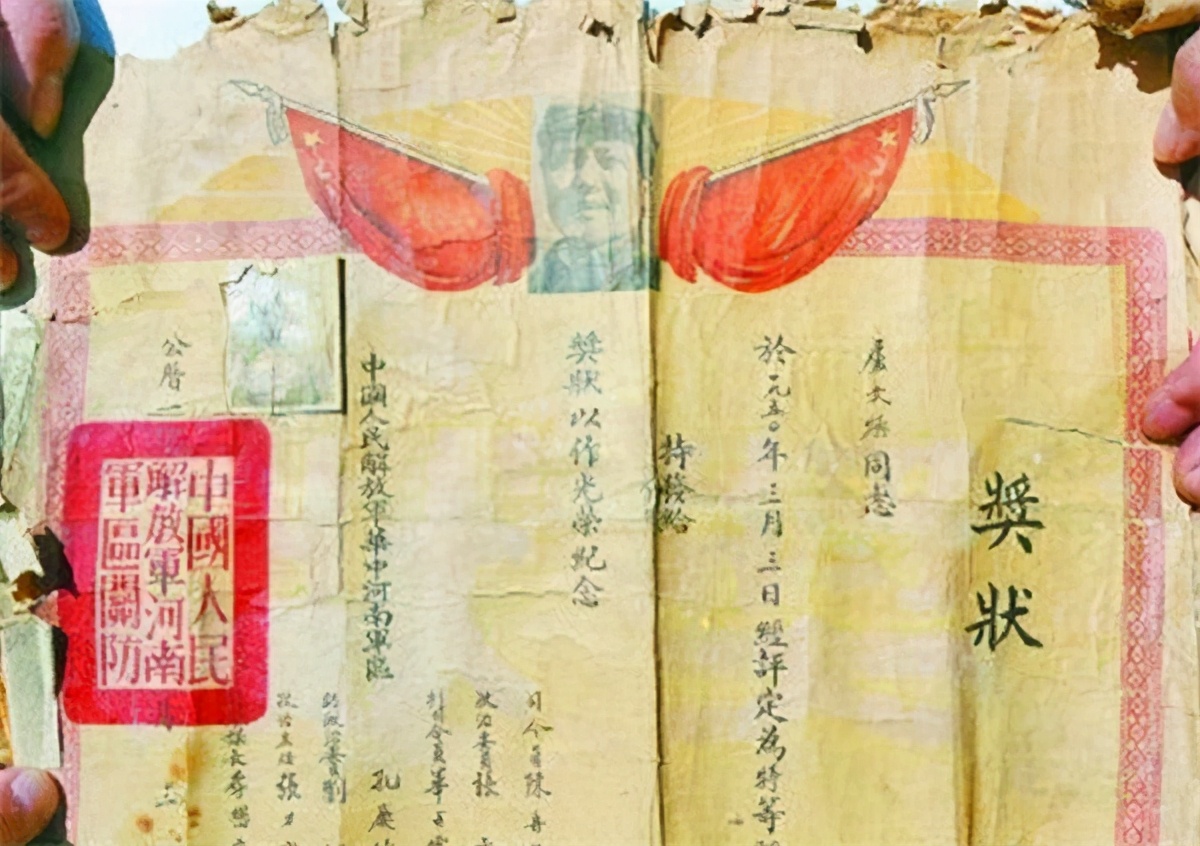 獎狀
文同志
於一九五〇年三月三日經評定為特等
特發給
獎狀以作光榮紀念
中國人民解放軍華中河南軍區
司令員陳再
政治委員張
副司令員畢占雲
孔慶
副政治委員劉
政治主任張
謀長李
公曆一
中國人民
解放軍河南
軍區關防